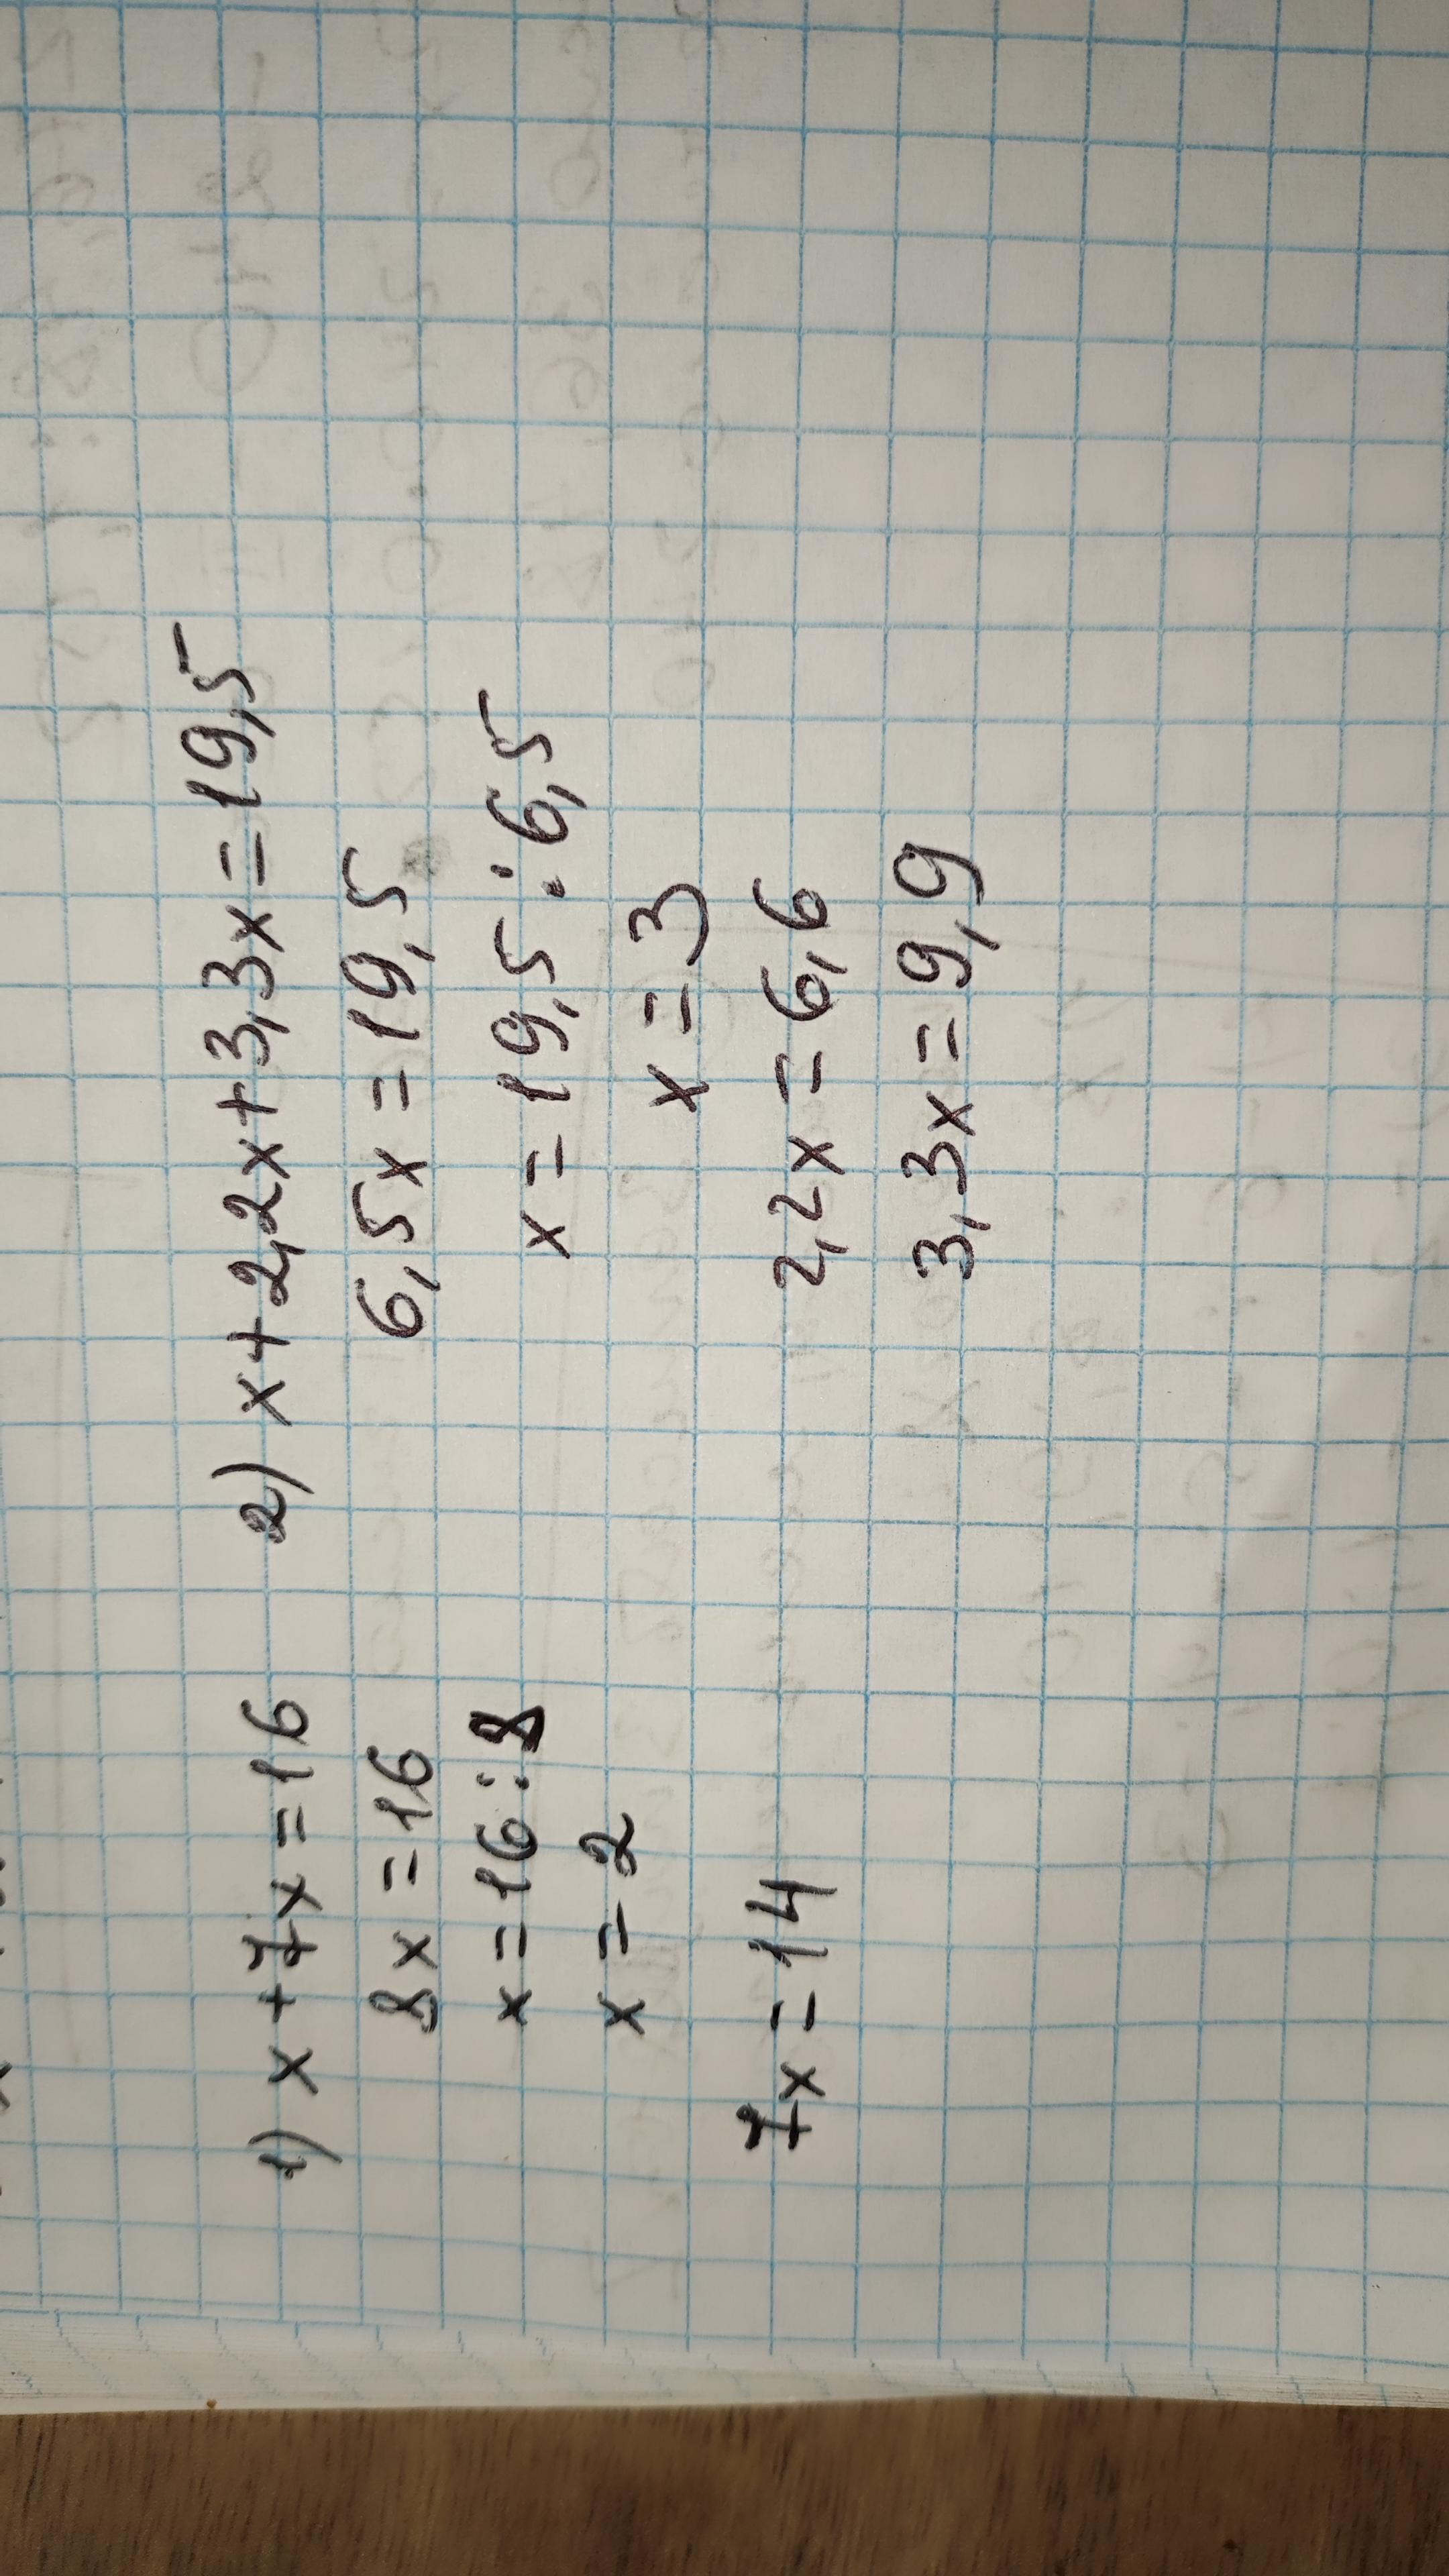 1) x + 7x = 16
8x = 16
x = 16 : 8
x = 2
7x = 14
2) x + 2,2x + 3,3x = 19,5
6,5x = 19,5
x = 19,5 : 6,5
x = 3
2,2x = 6,6
3,3x = 9,9